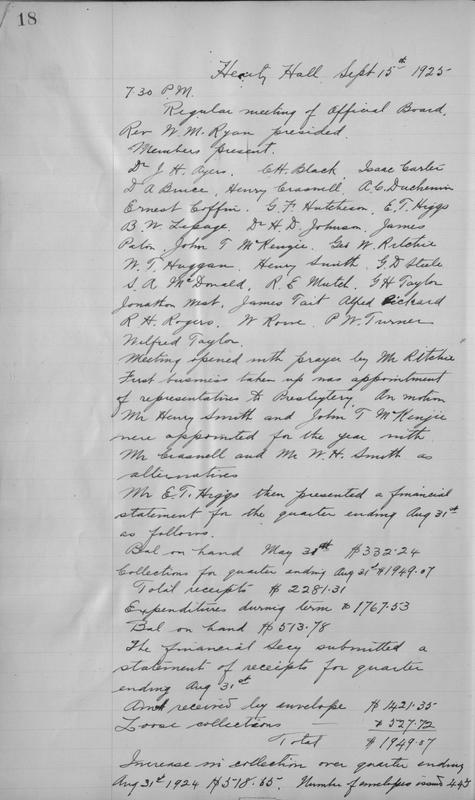 18
Heartz Hall Sept 15th 1925
7 30 P.M.
Regular meeting of Official Board.
Rev W. M. Ryan presided.
Members present.
Dr J. H. Ayers. C.H. Black, Isaac Carter
D A Bruce, Henry Craswell, A.C. Duchemin
Ernest Coffin. G. F. Hutcheson, E. T. Higgs
B. W. Lepage. Dr H. D. Johnson. James
Paton, John T McKenzie. Geo W. Ritchie
W. T. Huggan. Henry Smith. G. D Steele
S. A. McDonald, R. E Mutch. G H Taylor
Jonathon West, James Tait Alfred Pickard
R H. Rogers. W Rowe. P. W. Turner
Wilfred Taylor.
Meeting opened with prayer by Mr Ritchie
First business taken up was appointment
of representatives to Presbytery. On motion
Mr Henry Smith and John T McKenzie
were appointed for the year with
Mr Craswell and Mr W. H. Smith as
alternatives
Mr E. T. Higgs then presented a financial
statement for the quarter ending Aug 31st
as follows.
Bal on hand May 31st $332.24
Collections for quarter ending Aug 31st $1949.07
Total receipts $ 2281.31
Expenditures during term $1767.53
Bal on hand $513.78
The financial Secy submitted a
statement of receipts for quarter
ending Aug 31st
Amt received by envelope $1421.35
Loose collections — $527.72
Total $1949.07
Increase in collection over quarter ending
Aug 31st 1924 $518.65. Number of envelopes issued